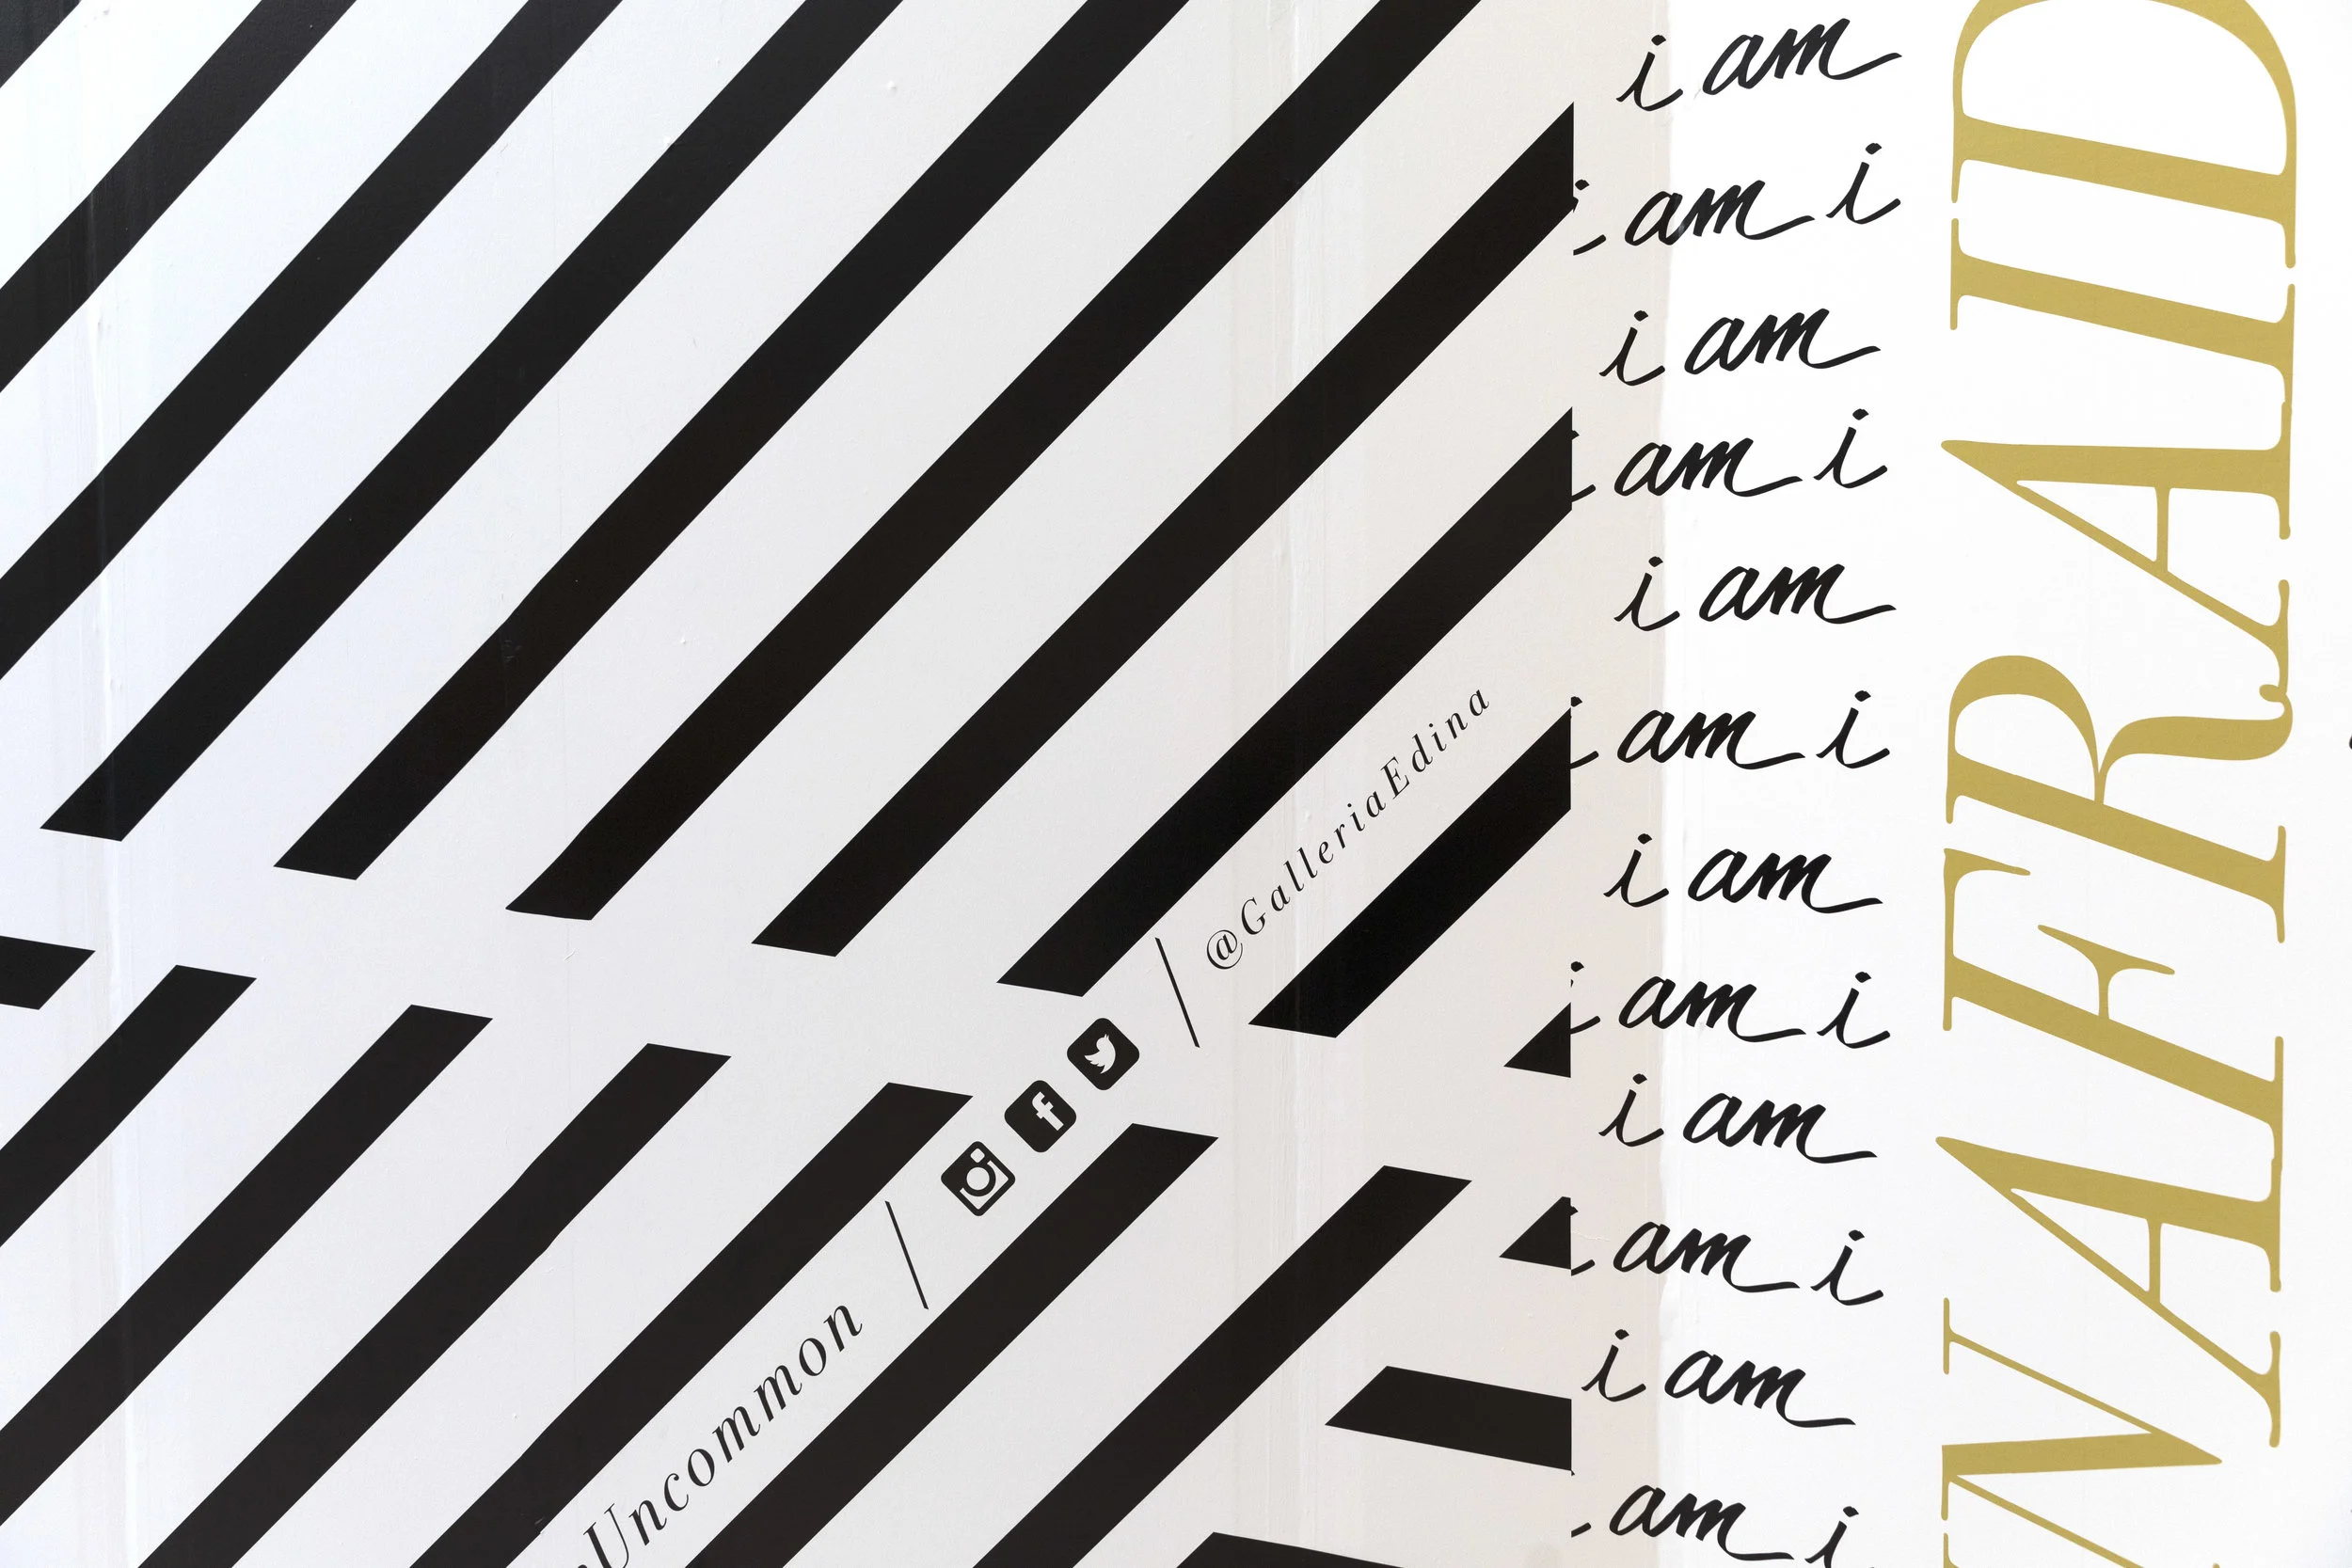 i am
i am i
i am
i am i
i am
i am i
i am
i am i
i am
i am i
i am
am i
NAFRAID
Uncommon / / @GalleriaEdina